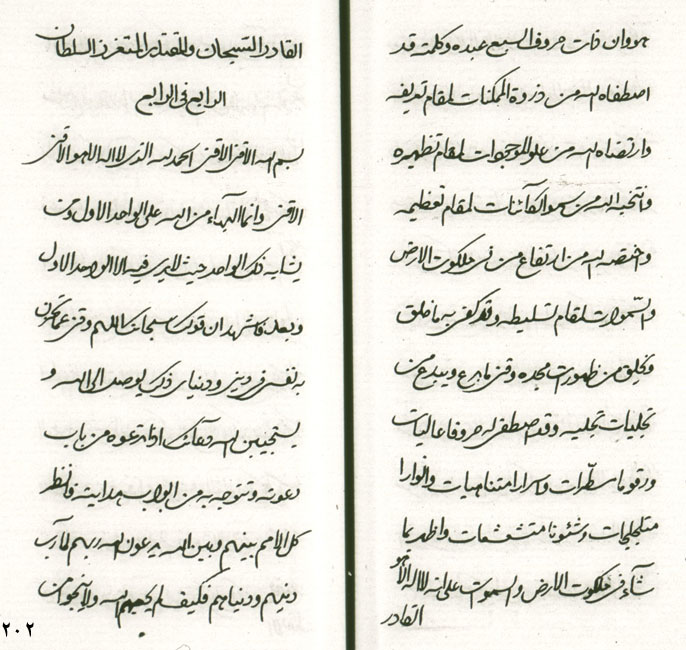 هو وان ذات حروف السبع عبده وكلمته قد
اصطفاه الله من ذروة الممكنات لمقام تعريفه
وارتضاه الله من علو الموجودات لمقام تظهيره
وانتجبه الله من سمو الكائنات لمقام تعظيمه
واختصه الله من ارتفاع من فى ملكوت الارض
والسموات لمقام تسليطه وقد كفى به ما خلق
ويخلق من ظهورات مجده وقمن ما بدع ويبدع من
تجليات تجليه وقد اصطفى له حروفا عاليات
ورقوما مسطرات واسرارا متناهيات وانوارا
متلجلجات وشئونا متشعشعات واظهر بما
شاء فى ملكوت الارض والسموات على انه لا اله الا هو
القادر
القادر السبحان والمقتدر المتعزز السلطان
الرابع فى الرابع
بسم الله الاقمن الاقمن الحمد لله الذى لا اله الا هو الاقمن
الاقمن وانما البهاء من الله على الواحد الاول ومن
يشابه ذلك الواحد حيث لا يرى فيه الا الواحد الاول
وبعد فاشهد ان قولك سبحانك اللهم
به نفس فى دينه ودنياه ذلك يوصله الى الله و
يستجيبن الله دعائك اذا تدعوه من باب
دعوته وتتوجه به من ابواب هدايته فانظر
كل الامم بينهم وبين الله يدعون الله ربهم لمآرب
دينهم ودنياهم فكيف لم يجبهم الله ولا ينجون من
٢٠٢